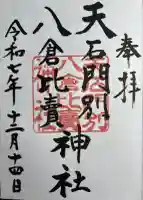 奉拝
天石門別
八倉比賣神社
令和七年十二月十四日